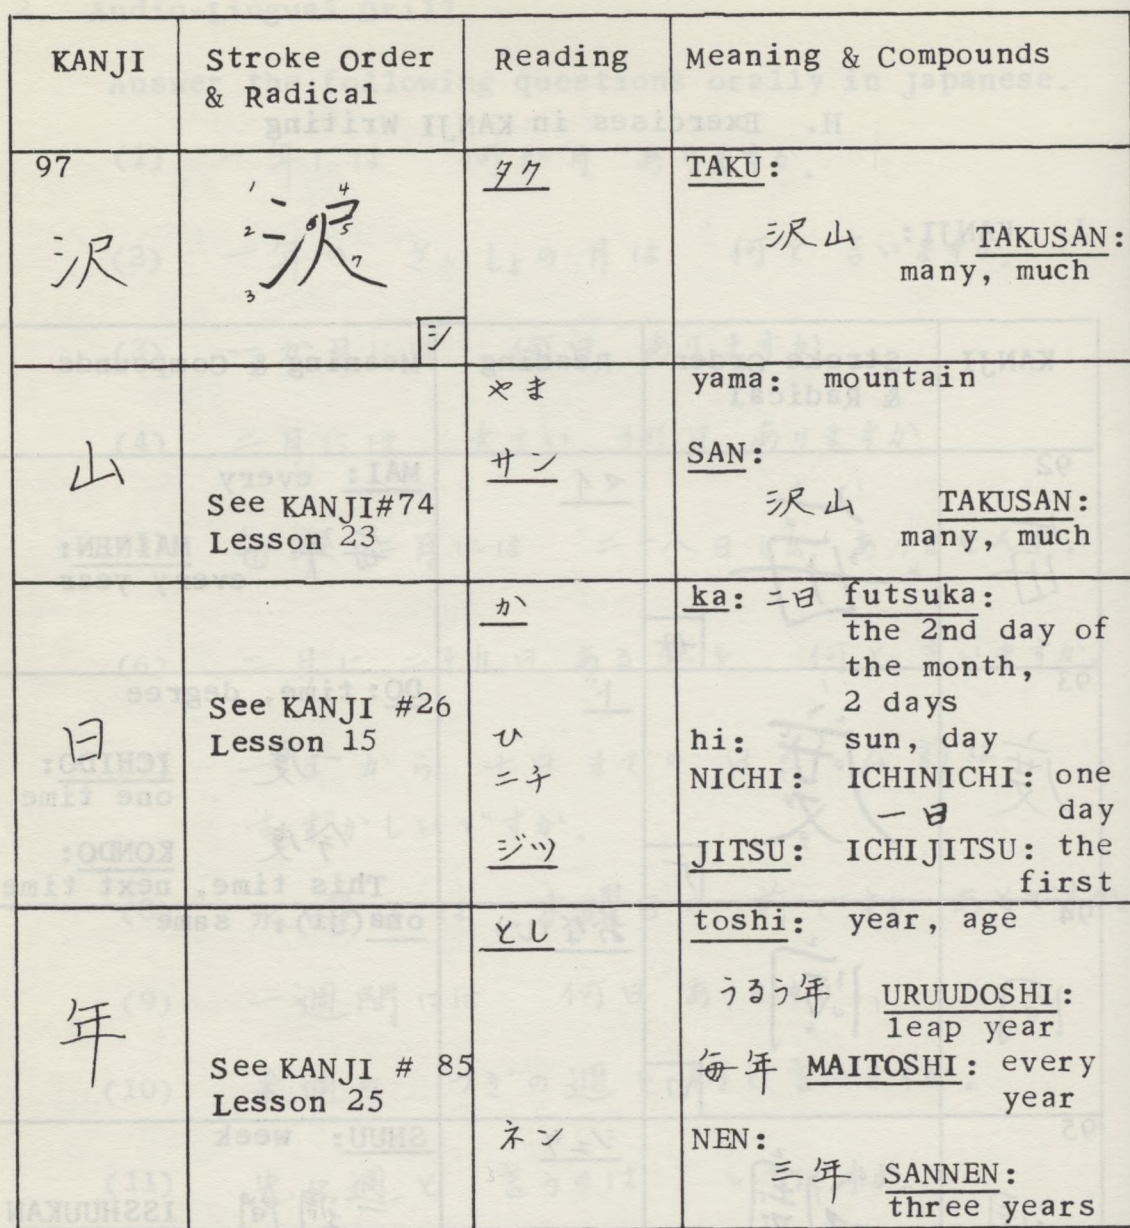 KANJI Stroke Order & Radical Reading Meaning & Compounds
97
沢
1 2 3 4 5 6 7
沢
シ
タク
TAKU:
沢山 TAKUSAN:
many, much
山
See KANJI#74
Lesson 23
やま
yama: mountain
サン
SAN:
沢山 TAKUSAN:
many, much
日
See KANJI #26
Lesson 15
か
ka: 二日 futsuka:
the 2nd day of
the month,
2 days
ひ
hi: sun, day
ニチ
NICHI: ICHINICHI: one
一日 day
ジツ
JITSU: ICHIJITSU: the
first
年
See KANJI # 85
Lesson 25
とし
toshi: year, age
うるう年 URUUDOSHI:
leap year
毎年 MAITOSHI: every
year
ネン
NEN:
三年 SANNEN:
three years